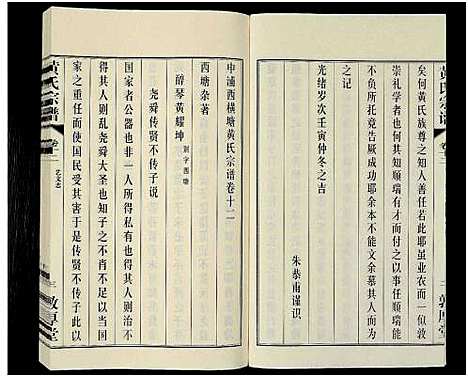 黄氏宗谱
卷二
敦厚堂
矣何黄氏族尊之知人善任若此耶虽业农而一似敦
崇礼学者也其知顺瑞有才而付之以事任顺瑞能
不负所托竟告厥成功耶余本不能文余慕其人而为
之记
光绪岁次壬寅仲冬之吉
朱恭甫谨识
申浦西横塘黄氏宗谱卷十二
西塘杂著
醉琴黄耀坤 别字西塘
尧舜传贤不传子说
国家者公器也非一人所得私有也得其人则治不
得其人则乱尧舜大圣也知子之不肖不足以当国
家之重任而使国民受其害于是传贤不传子此以
黄氏宗谱
艺文志
敦厚堂